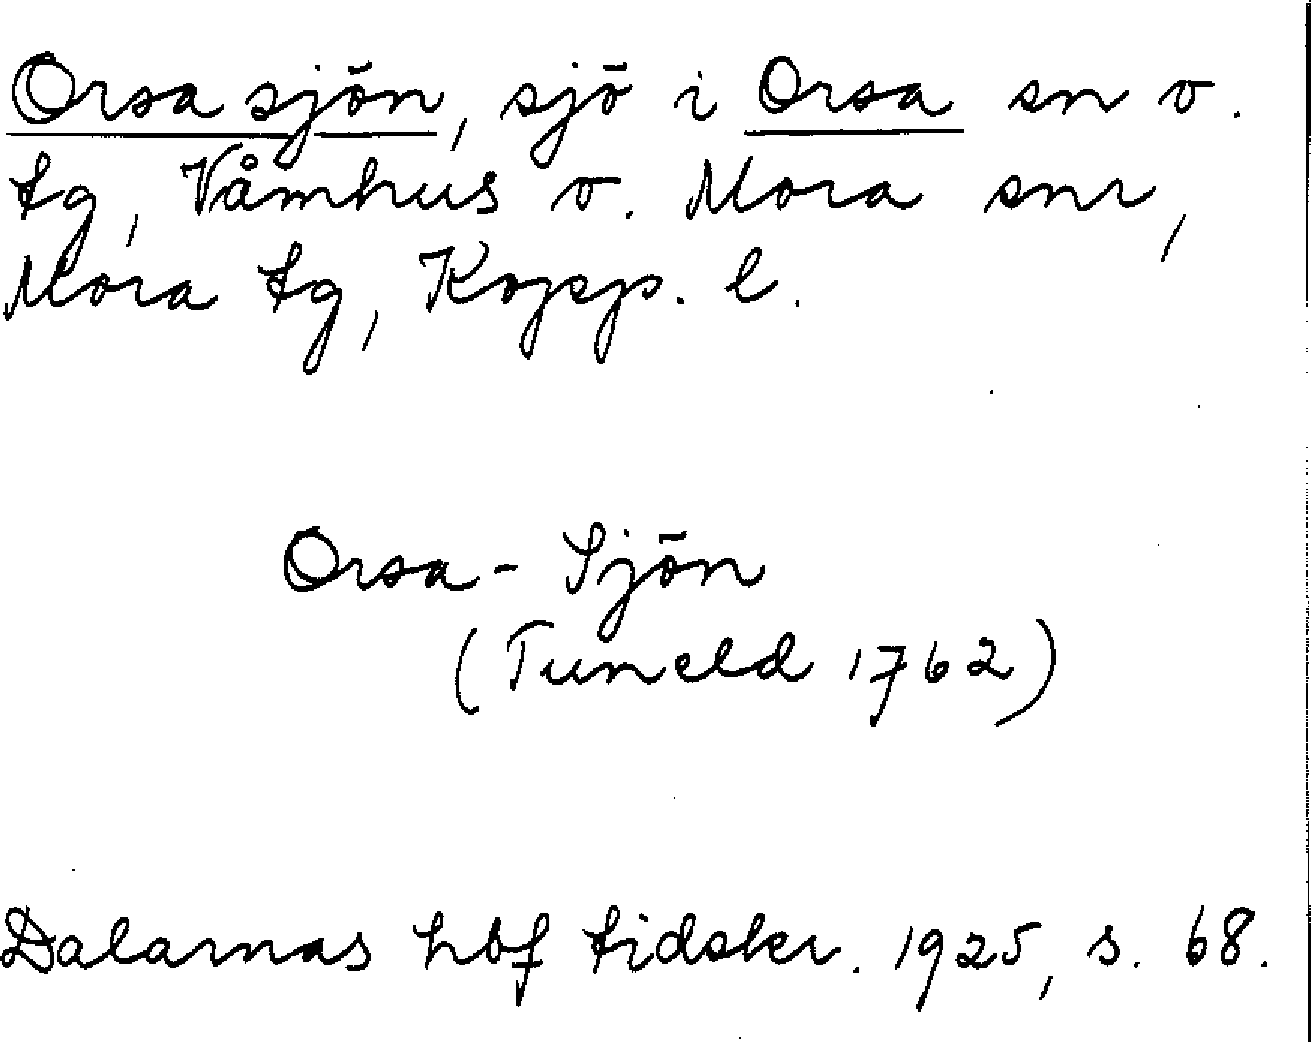 Orsasjön, sjö i Orsa sn o.
tg, Våmhus o. Mora snr,
Mora tg, Kopp. l.
Orsa-Sjön
(Tuneld 1762)
Dalarnas hbf tidskr. 1925, s. 68.